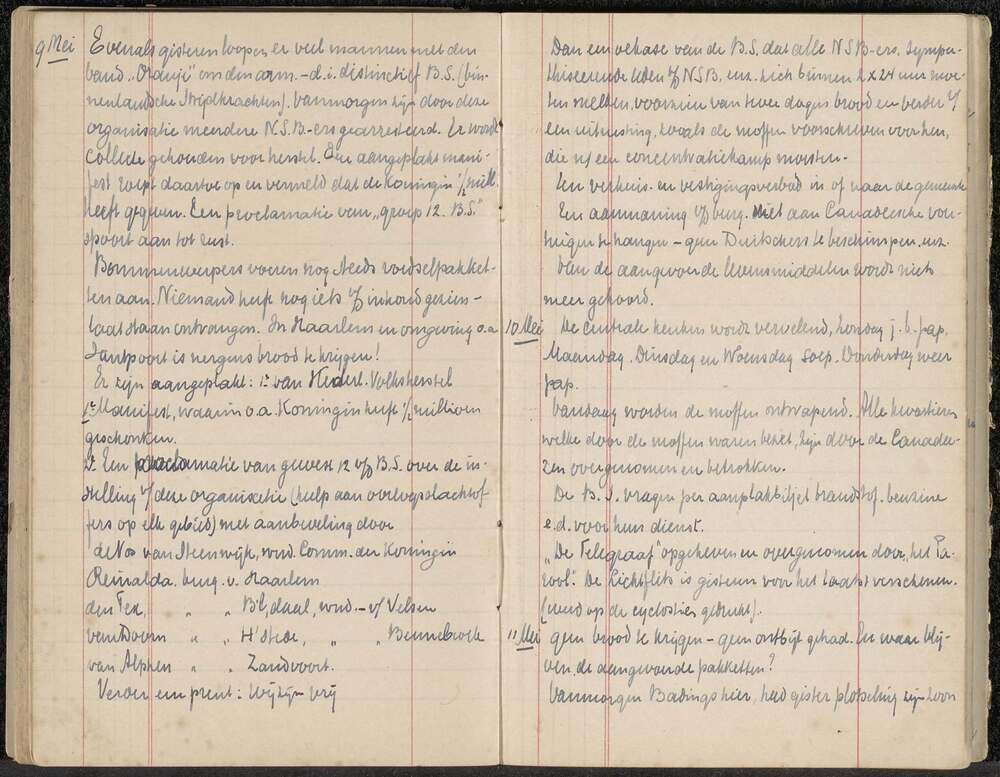 9 Mei Evenals gisteren loopen er veel mannen met den
band "Oranje" om den arm. - d.i. distinctief B.S. (bin-
nenlandsche Strijdkrachten). Vanmorgen zijn door deze
organisatie meerdere N.S.B.-ers gearresteerd. Er wordt
collecte gehouden voor herstel. Een aangeplakt mani-
fest roept daartoe op en vermeld dat de Koningin ½ mill.
heeft gegeven. Een proclamatie van "groep 12. B.S."
spoort aan tot rust.
Bommenwerpers voeren nog steeds voedselpakket-
ten aan. Niemand heeft nog iets v/d inhoud gezien -
laat staan ontvangen. In Haarlem en omgeving o.a.
Santpoort is nergens brood te krijgen!
Er zijn aangeplakt: 1e van Nederl. Volksherstel
1e Manifest, waarin o.a. Koningin heeft ½ millioen
geschonken.
2e Een proclamatie van gewest 12 v/d B.S. over de in-
stelling v/ deze organisatie (hulp aan oorlogsslachtof-
fers op elk gebied) met aanbeveling door
de Vos van Steenwijk, wnd. Comm. der Koningin
Reinalda. burg. v. Haarlem
den Tex, " " Bl,daal, wnd. - v/ Velsen
van Doorn " " H'stede, " " Bennebroek
van Alphen " " Zandvoort.
Verder een prent: Wij zijn vrij
Dan een oekase van de B.S. dat alle N.S.B-ers. sympa-
thiseerende leden v/d N.S.B. enz. zich binnen 2 x 24 uur moe-
ten melden, voorzien van twee dagen brood en verder v/
een uitrusting, zooals de moffen voorschreven voor hen,
die n/ een concentratiekamp moesten. -
Een verhuis- en vestigingsverbod in of naar de gemeente
Een aanmaning v/d burg. niet aan Canadeesche voer-
tuigen te hangen - geen Duitschers te beschimpen enz.
Van de aangevoerde levensmiddelen wordt niets
meer gehoord.
10 Mei De Centrale keuken wordt vervelend, Zondag j.l. pap.
Maandag. Dinsdag en Woensdag soep. Donderdag weer
pap.
Vandaag worden de moffen ontwapend. Alle kwartieren
welke door de moffen waren bezet, zijn door de Canadee-
zen overgenomen en betrokken.
De B.S. vragen per aanplakbiljet brandstof. benzine
e.d. voor hun dienst.
"De Telegraaf" opgeheven en overgenomen door "het Pa-
rool". De Lichtflits is gisteren voor het laatst verschenen.
(werd op de cyclostyle gedrukt).
11 Mei geen brood te krijgen - geen ontbijt gehad. En waar blij-
ven de aangevoerde pakketten?
Vanmorgen Badings hier, had gister plotseling zijn zoon